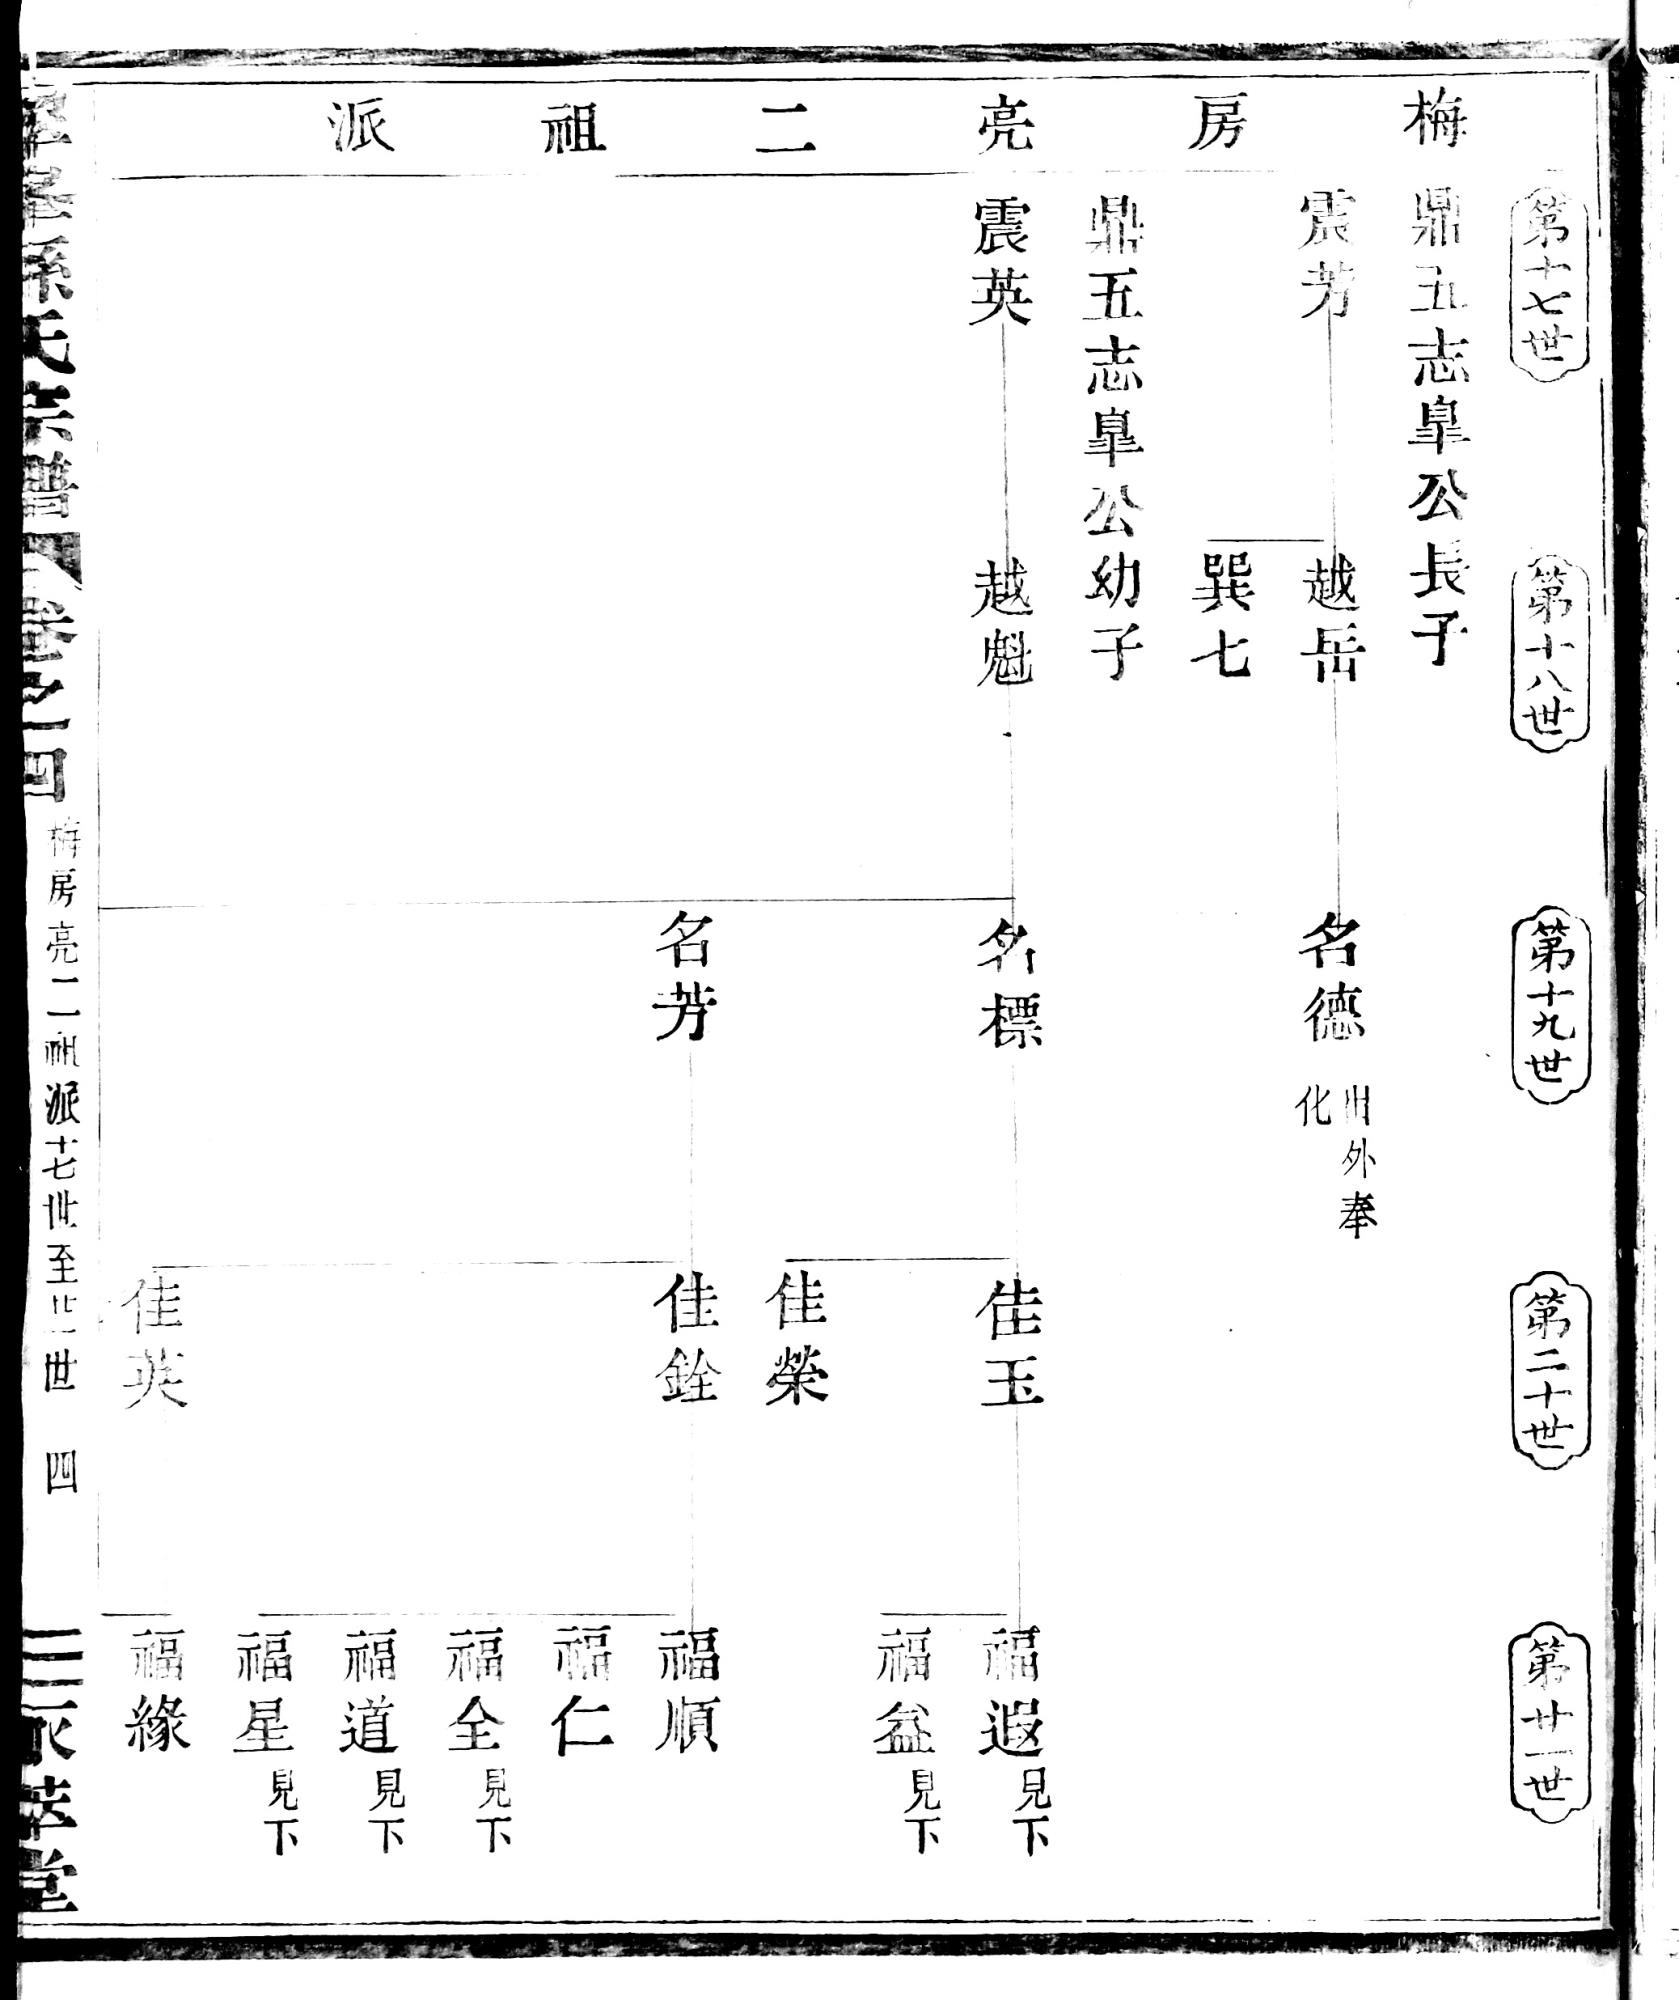 梅房亮二祖派
第十七世
第十八世
第十九世
第二十世
第廿一世
鼎五志臯公長子
震芳
越岳
名德
出外奉
化
巽七
鼎五志臯公幼子
震英
越魁
名標
佳玉
福遐見下
福益見下
佳榮
名芳
佳銓
福順
福仁
福全見下
福道見下
福星見下
佳英
福緣
孫氏宗譜
卷之四
梅房亮二祖派十七世至廿一世
四
堂